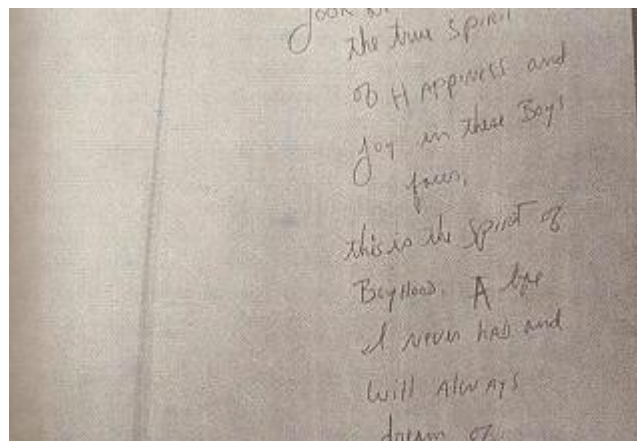 Look
the true spirit
of HAppiness and
Joy in these Boys
faces,
this is the spirit of
BoyHood. A life
I never HAD and
will AlwAys
dream of